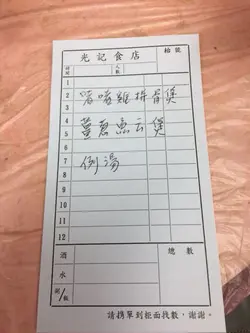 光記食店
檯號
時間
人數
1
2 啫啫雞拼骨煲
3
4 薑蔥魚云煲
5
6
7 例湯
8
9
10
11
12
酒水
總數
例/位
請携單到柜面找數，謝謝。